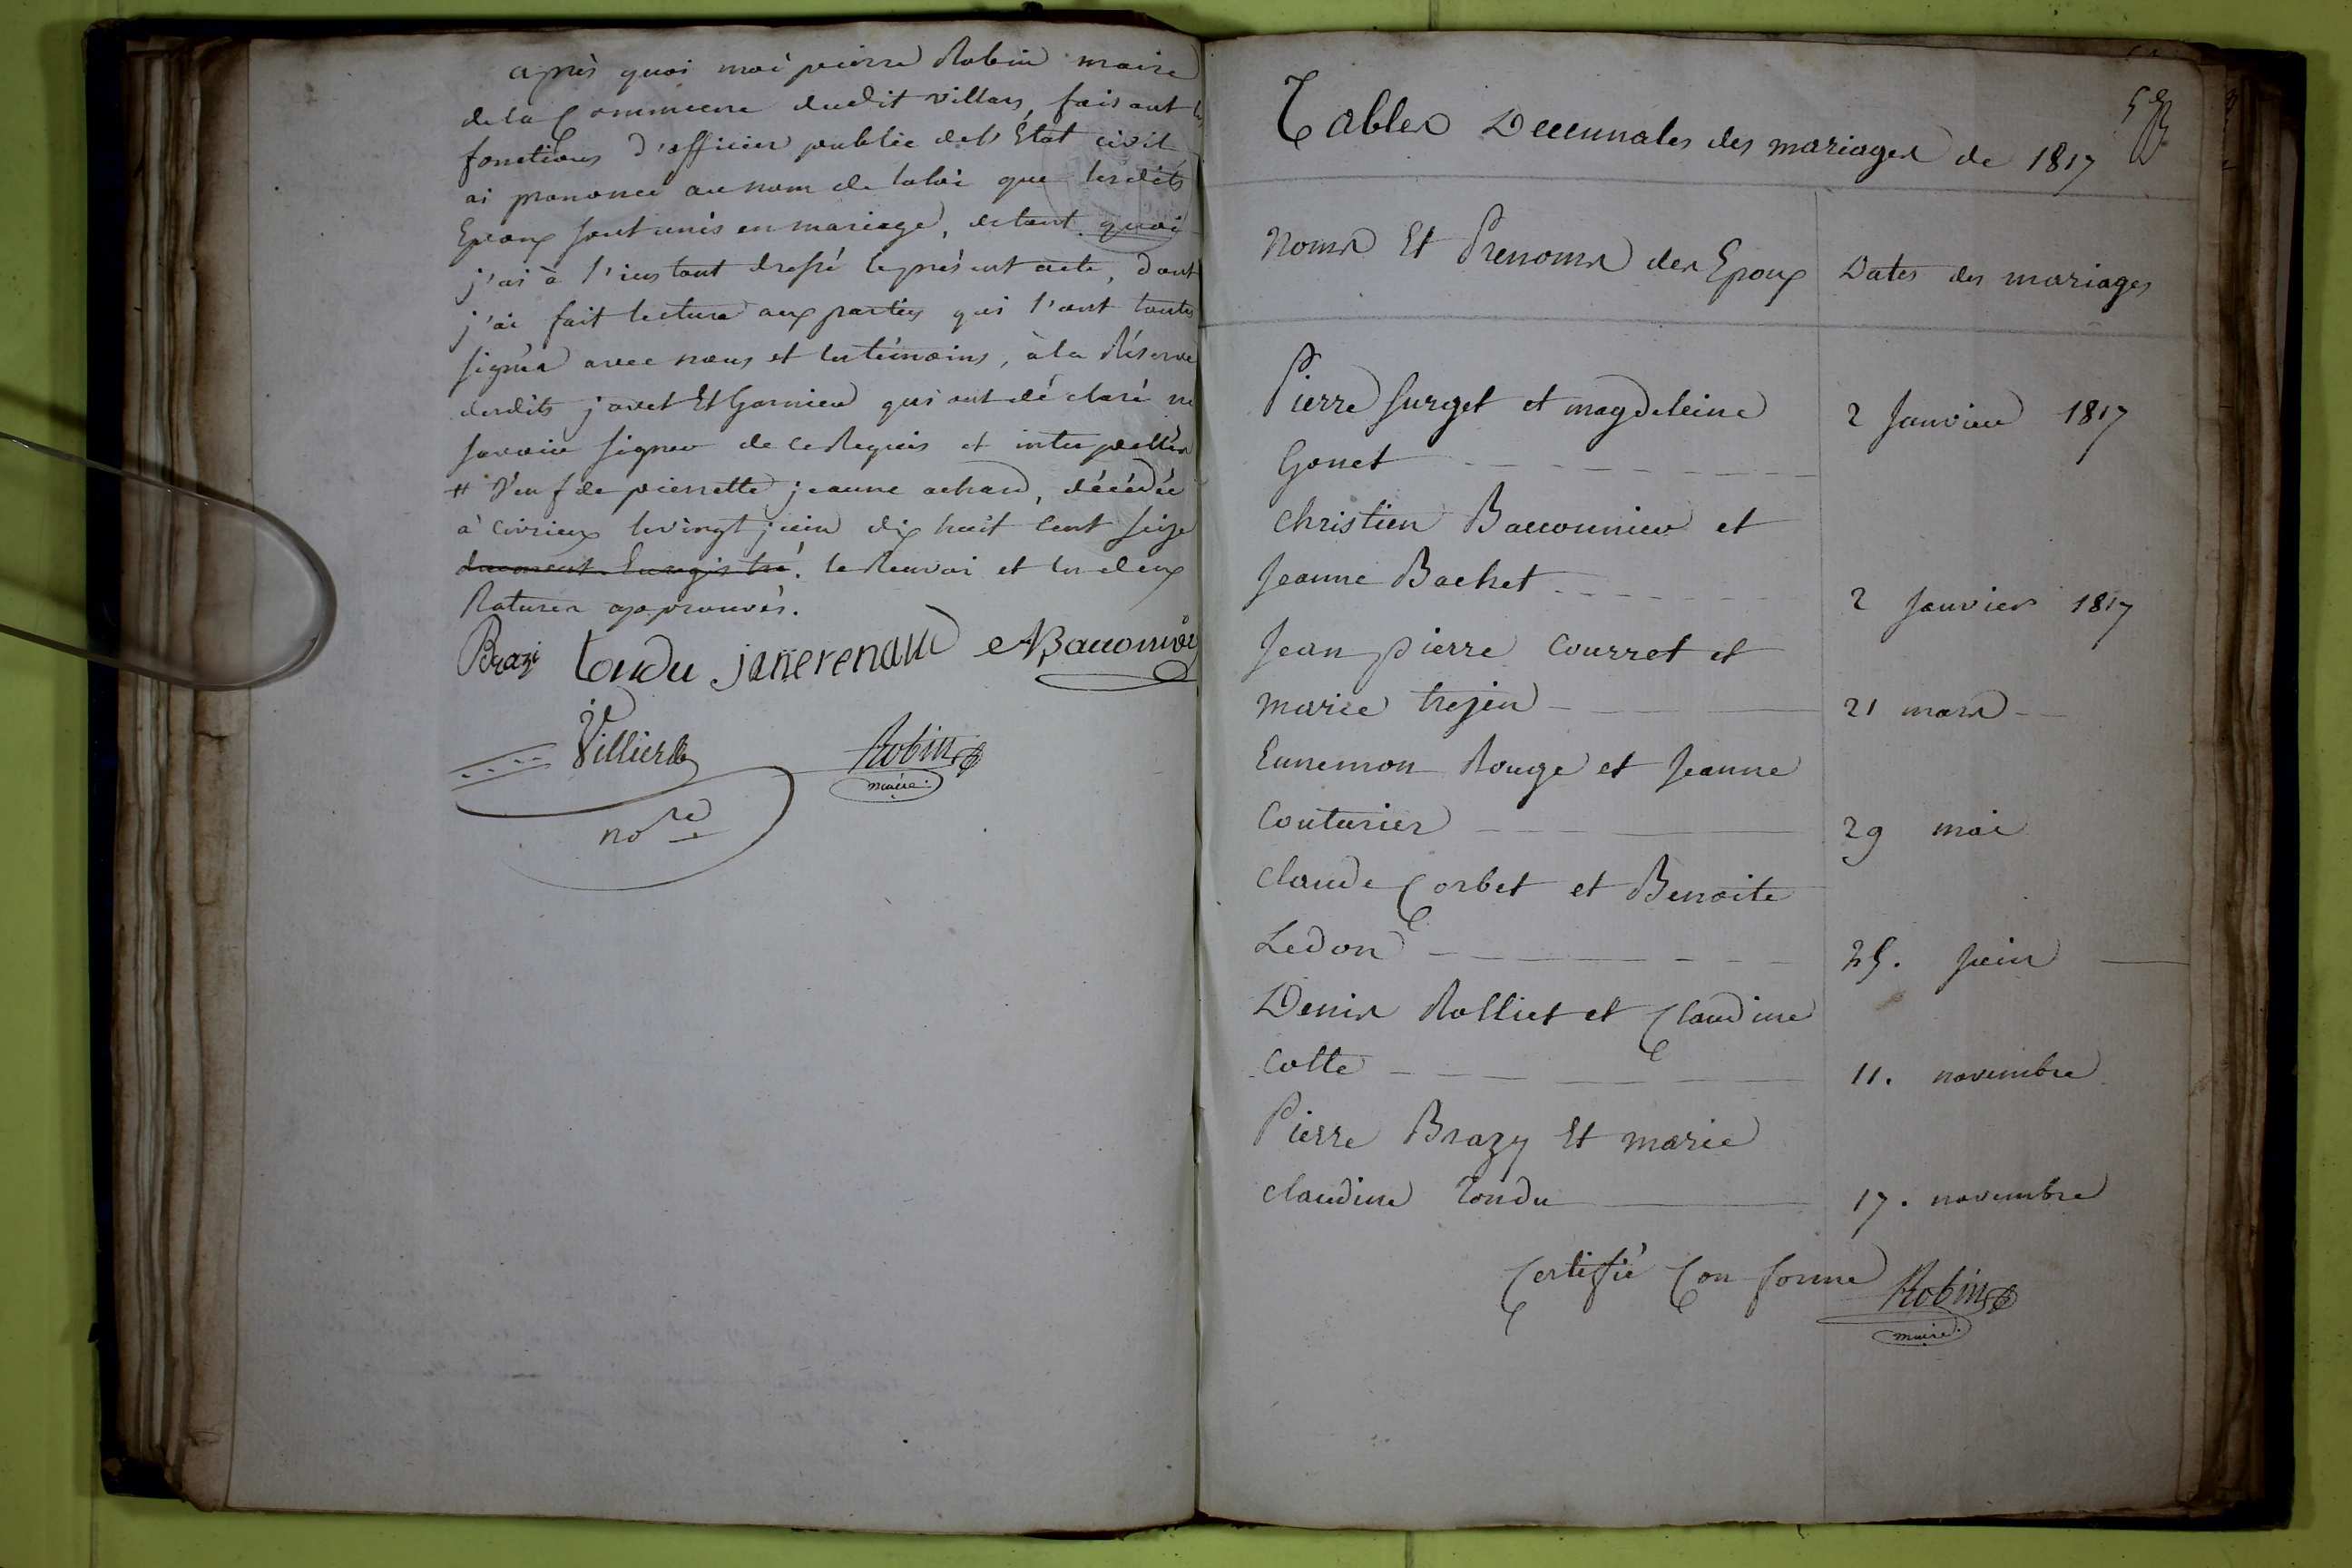 après quoi moi pierre Robin maire
de la Commune dudit villars, faisant les
fonctions d'officier public de l'Etat civil
ai prononcé au nom de la loi que lesdits
Epoux sont unis en mariage, de tout quoi
j'ai à l'instant dressé le présent acte, dont
j'ai fait lecture aux parties qui l'ont toutes
signée avec nous et les témoins, à la Réserve
desdits javet Et Garnier qui ont déclaré ne
savoir signer de ce Requis et interpellés
# Veuf de pierrette jeanne achard, décédée
à civrieux le vingt juin dix huit cent seize
le Renvoi et les deux
Ratures approuvés.
Brazi tondu jane renaud Baconnier
Villierds Robin
maire
nore
Tables Decennales des mariages de 1817
Noms Et Prenoms des Epoux Dates des mariages
Pierre Surget et magdeleine
Gonet 2 Janvier 1817
Christien Bacconnier et
Jeanne Bachet 2 Janvier 1817
Jean pierre Courret et
marie trejen 21 mars
Ennemon Rouge et Jeanne
Couturier 29 mai
Claude Corbet et Benoite
Ledon 25. Juin
Denis Rolliet et Claudine
Cotte 11. novembre
Pierre Brazy Et marie
Claudine Tondu 17. novembre
Certifié Conforme Robin
maire